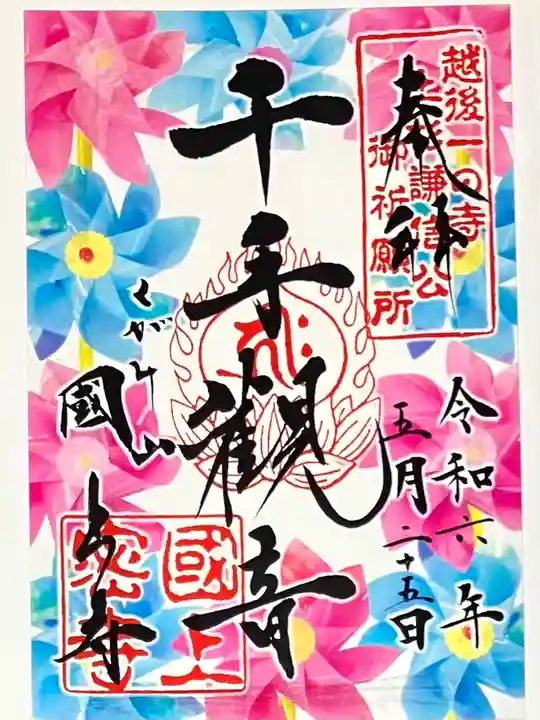 奉拝
越後一の寺
上杉謙信公
御祈願所
令和六年
五月二十五日
千手観音
くがみ山
國上寺
國上
寺